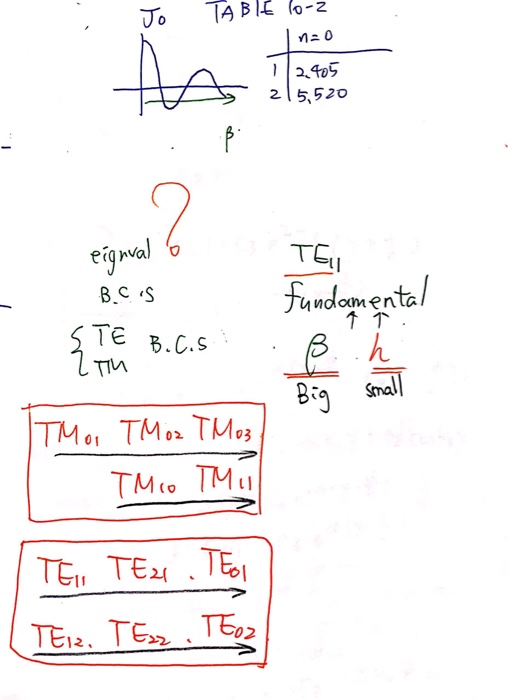 J0 TABLE 10-2
n=0
1 2.405
2 5.520
β
?
eignval
B.C.'s
TE B.C.S
TM
TE11
fundamental
β h
Big small
TM01 TM02 TM03
TM10 TM11
TE11 TE21 . TE01
TE12 . TE22 . TE02